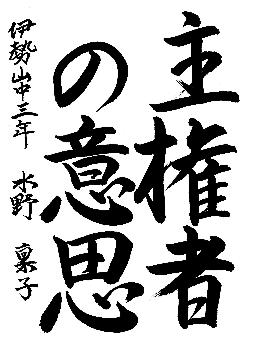 主権者
の意思
伊勢山中三年 水野 稟子